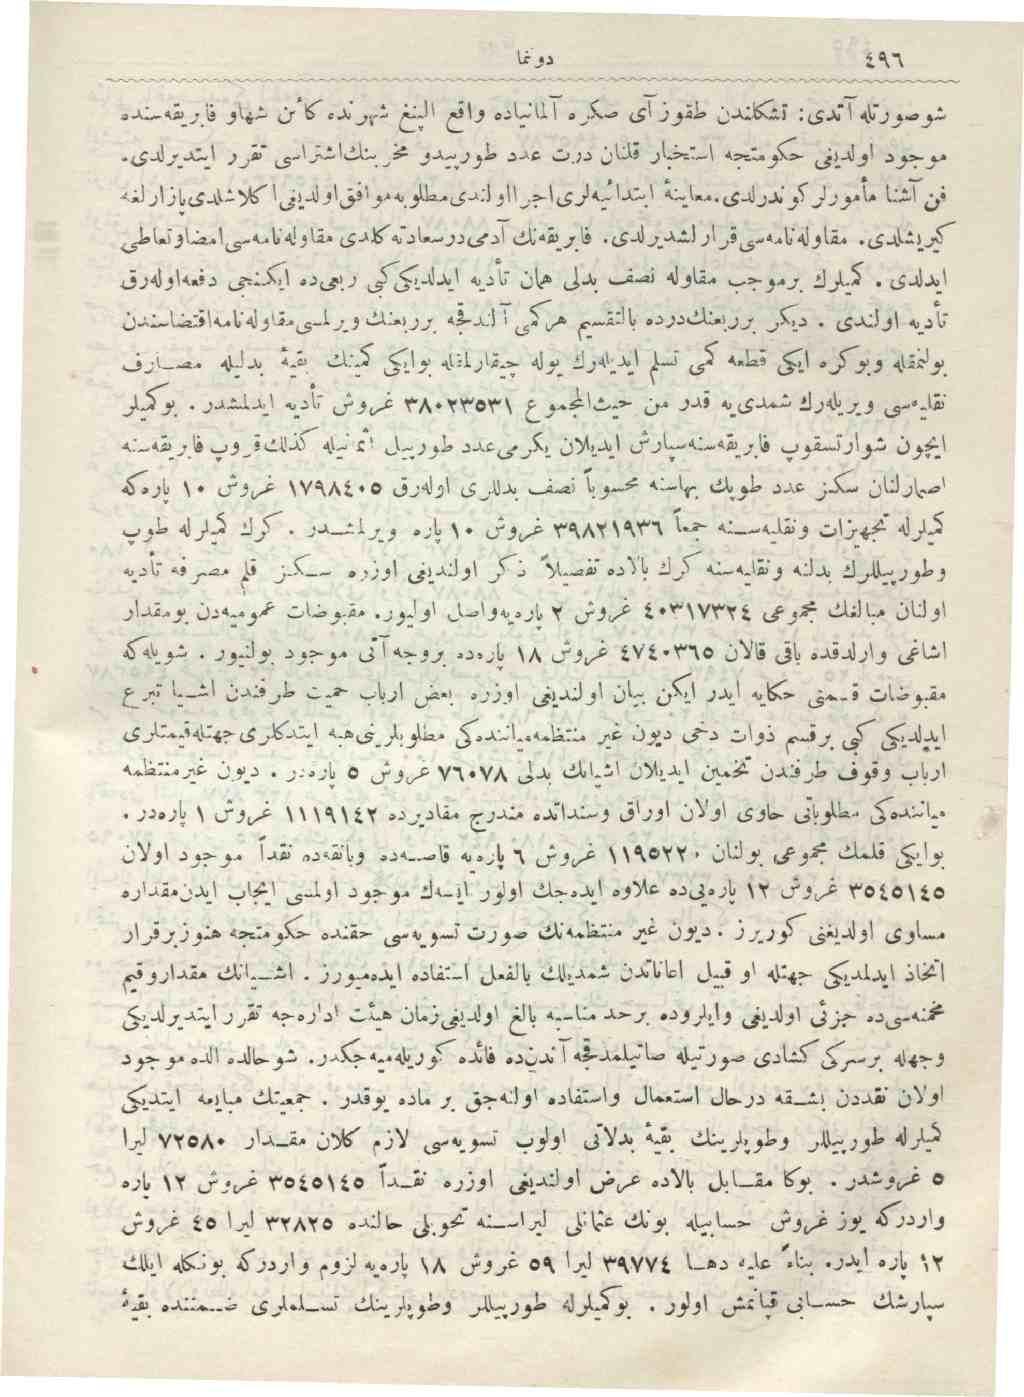 ٤٩٦ دونما
شوصورتله آتدی: تشكلندن طقوز آی صكره آلمانیاده واقع البنغ شهرنده كائن شهاو فابریقه‌سنده
موجود اولدیغی حكومتجه استخبار قلنان درت عدد طورپیدو مخربنك اشتراسی تقرر ایتدیرلدی.
فن آشنا مأمورلر كوندرلدی. معاینهٔ ابتدائیه‌لری اجرا اولندی مطلوبه موافق اولدیغی اكلاشلدی پازارلغه
كیریشلدی. مقاوله‌نامه‌سی قرارلشدیرلدی. فابریقه‌نك آدمی درسعادته كلدی مقاوله‌نامه‌سی امضا وتعاطی
ایدلدی. كمیلرك برموجب مقاوله نصف بدلی همان تأدیه ایدلدیكی كبی ربعی‌ده ایكنجی دفعه اوله‌رق
تأدیه اولندی. دیكر برربعنك درده بالتقسیم هركمی آلندقجه برربعنك ویرلمسی مقاوله‌نامه اقتضاسندن
بولنمقله وبوكره ایكی قطعه كمی تسلم ایدیله‌رك یوله چیقارلمغله بوایكی كمینك بقیهٔ بدلیله مصارف
نقلیه‌سی ویریله‌رك شمدی‌یه قدر من حیث المجموع ٣٨٠٢٣٥٣١ غروش تأدیه ایدلمشدر. بوكمیلر
ایچون شوارتسقوپ فابریقه‌سنه سپارش ایدیلان یكرمی عدد طورپیل اثمانیله كذلك قروپ فابریقه‌سنه
اصمارلنان سكز عدد طوپك بهاسنه محسوباً نصف بدللری اوله‌رق ١٧٩٨٤٠٥ غروش ١٠ پاره‌كه
كمیلرله تجهیزات ونقلیه‌سنه جمعاً ٣٩٨٢١٩٣٦ غروش ١٠ پاره ویرلمشدر. كرك كمیلرله طوپ
وطورپیللرك بدلنه ونقلیه‌سنه كرك بالاده تفصیلاً ذكر اولندیغی اوزره سكز قلم مصرفه تأدیه
اولنان مبالغك مجموعی ٤٠٣١٧٣٢٤ غروش ٢ پاره‌یه واصل اولیور. مقبوضات عمومیه‌دن بومقدار
اشاغی وارلدقده باقی قالان ٤٧٤٠٣٦٥ غروش ١٨ پاره‌ده بروجه آتی موجود بولنیور. شویله‌كه
مقبوضات قسمنی حكایه ایدر ایكن بیان اولندیغی اوزره بعض ارباب حمیت طرفندن اشیا تبرع
ایدلدیكی كبی برقسم ذوات دخی دیون غیر منتظمه میاننده‌كی مطلوبلرینی هبه ایتدكلری جهتله قیمتلری
ارباب وقوف طرفندن تخمین ایدیلان اشیانك بدلی ٧٦٠٧٨ غروش ٥ پاره‌در. دیون غیرمنتظمه
میاننده‌كی مطلوباتی حاوی اولان اوراق وسنداتده مندرج مقادیرده ١١١٩١٤٢ غروش ١ پاره‌در.
بوایكی قلمك مجموعی بولنان ١١٩٥٢٢٠ غروش ٦ پاره‌یه قاصه‌ده وبانقه‌ده نقداً موجود اولان
٣٥٤٥١٤٥ غروش ١٢ پاره‌یی‌ده علاوه ایده‌جك اولور ایسه‌ك موجود اولمسی ایجاب ایدن مقداره
مساوی اولدیغنی كوریرز. دیون غیر منتظمه‌نك صورت تسویه‌سی حقنده حكومتجه هنوز برقرار
اتخاذ ایدلمدیكی جهتله او قبیل اعاناتدن شمدیلك بالفعل استفاده ایده‌میورز. اشیانك مقدار وقیم
مخمنه‌سی‌ده جزئی اولدیغی وایلروده برحد مناسبه بالغ اولدیغی زمان هیئت اداره‌جه تقرر ایتدیرلدیكی
وجهله برسركی كشادی صورتیله صاتیلمدقجه آندن‌ده فائده كوریله‌میه‌جكدر. شوحالده الده موجود
اولان نقددن بشقه درحال استعمال واستفاده اولنه‌جق بر ماده یوقدر. جمعیتك مبایعه ایتدیكی
كمیلرله طورپیللر وطوپلرینك بقیهٔ بدلاتی اولوب تسویه‌سی لازم كلان مقدار ٧٢٥٨٠ لیرا
٥ غروشدر. بوكا مقابل بالاده عرض اولندیغی اوزره نقداً ٣٥٤٥١٤٥ غروش ١٢ پاره
واردركه یوز غروش حسابیله بونك عثمانلی لیراسنه تحویلی حالنده ٣٢٨٢٥ لیرا ٤٥ غروش
١٢ پاره ایدر. بناءً علیه دها ٣٩٧٧٤ لیرا ٥٩ غروش ١٨ پاره‌یه لزوم واردركه بونكله ایلك
سپارشك حسابی قپانمش اولور. بوكمیلرله طورپیللر وطوپلرینك تسلملری ضمننده بقیهٔ